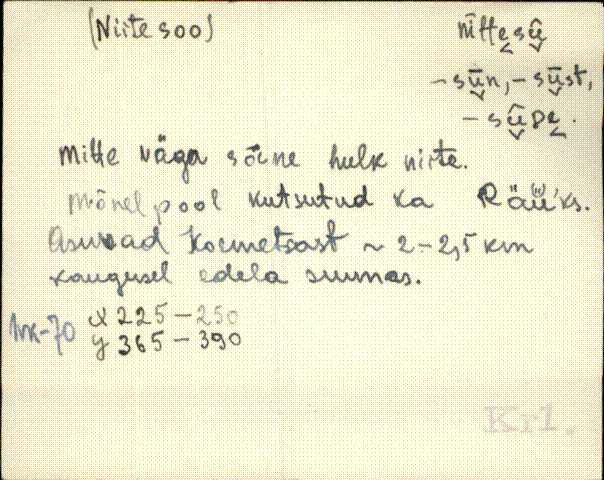 (Niite soo)
nīttesū
-sūn, -sūst,
-sūDe.
Mitte väga soine hulk niite.
Mõnel pool kutsutud ka Räüks.
Asuvad Koemetsast ~ 2-2,5 km
kaugusel edela suunas.
X 225-250
y 365-390
Krl.